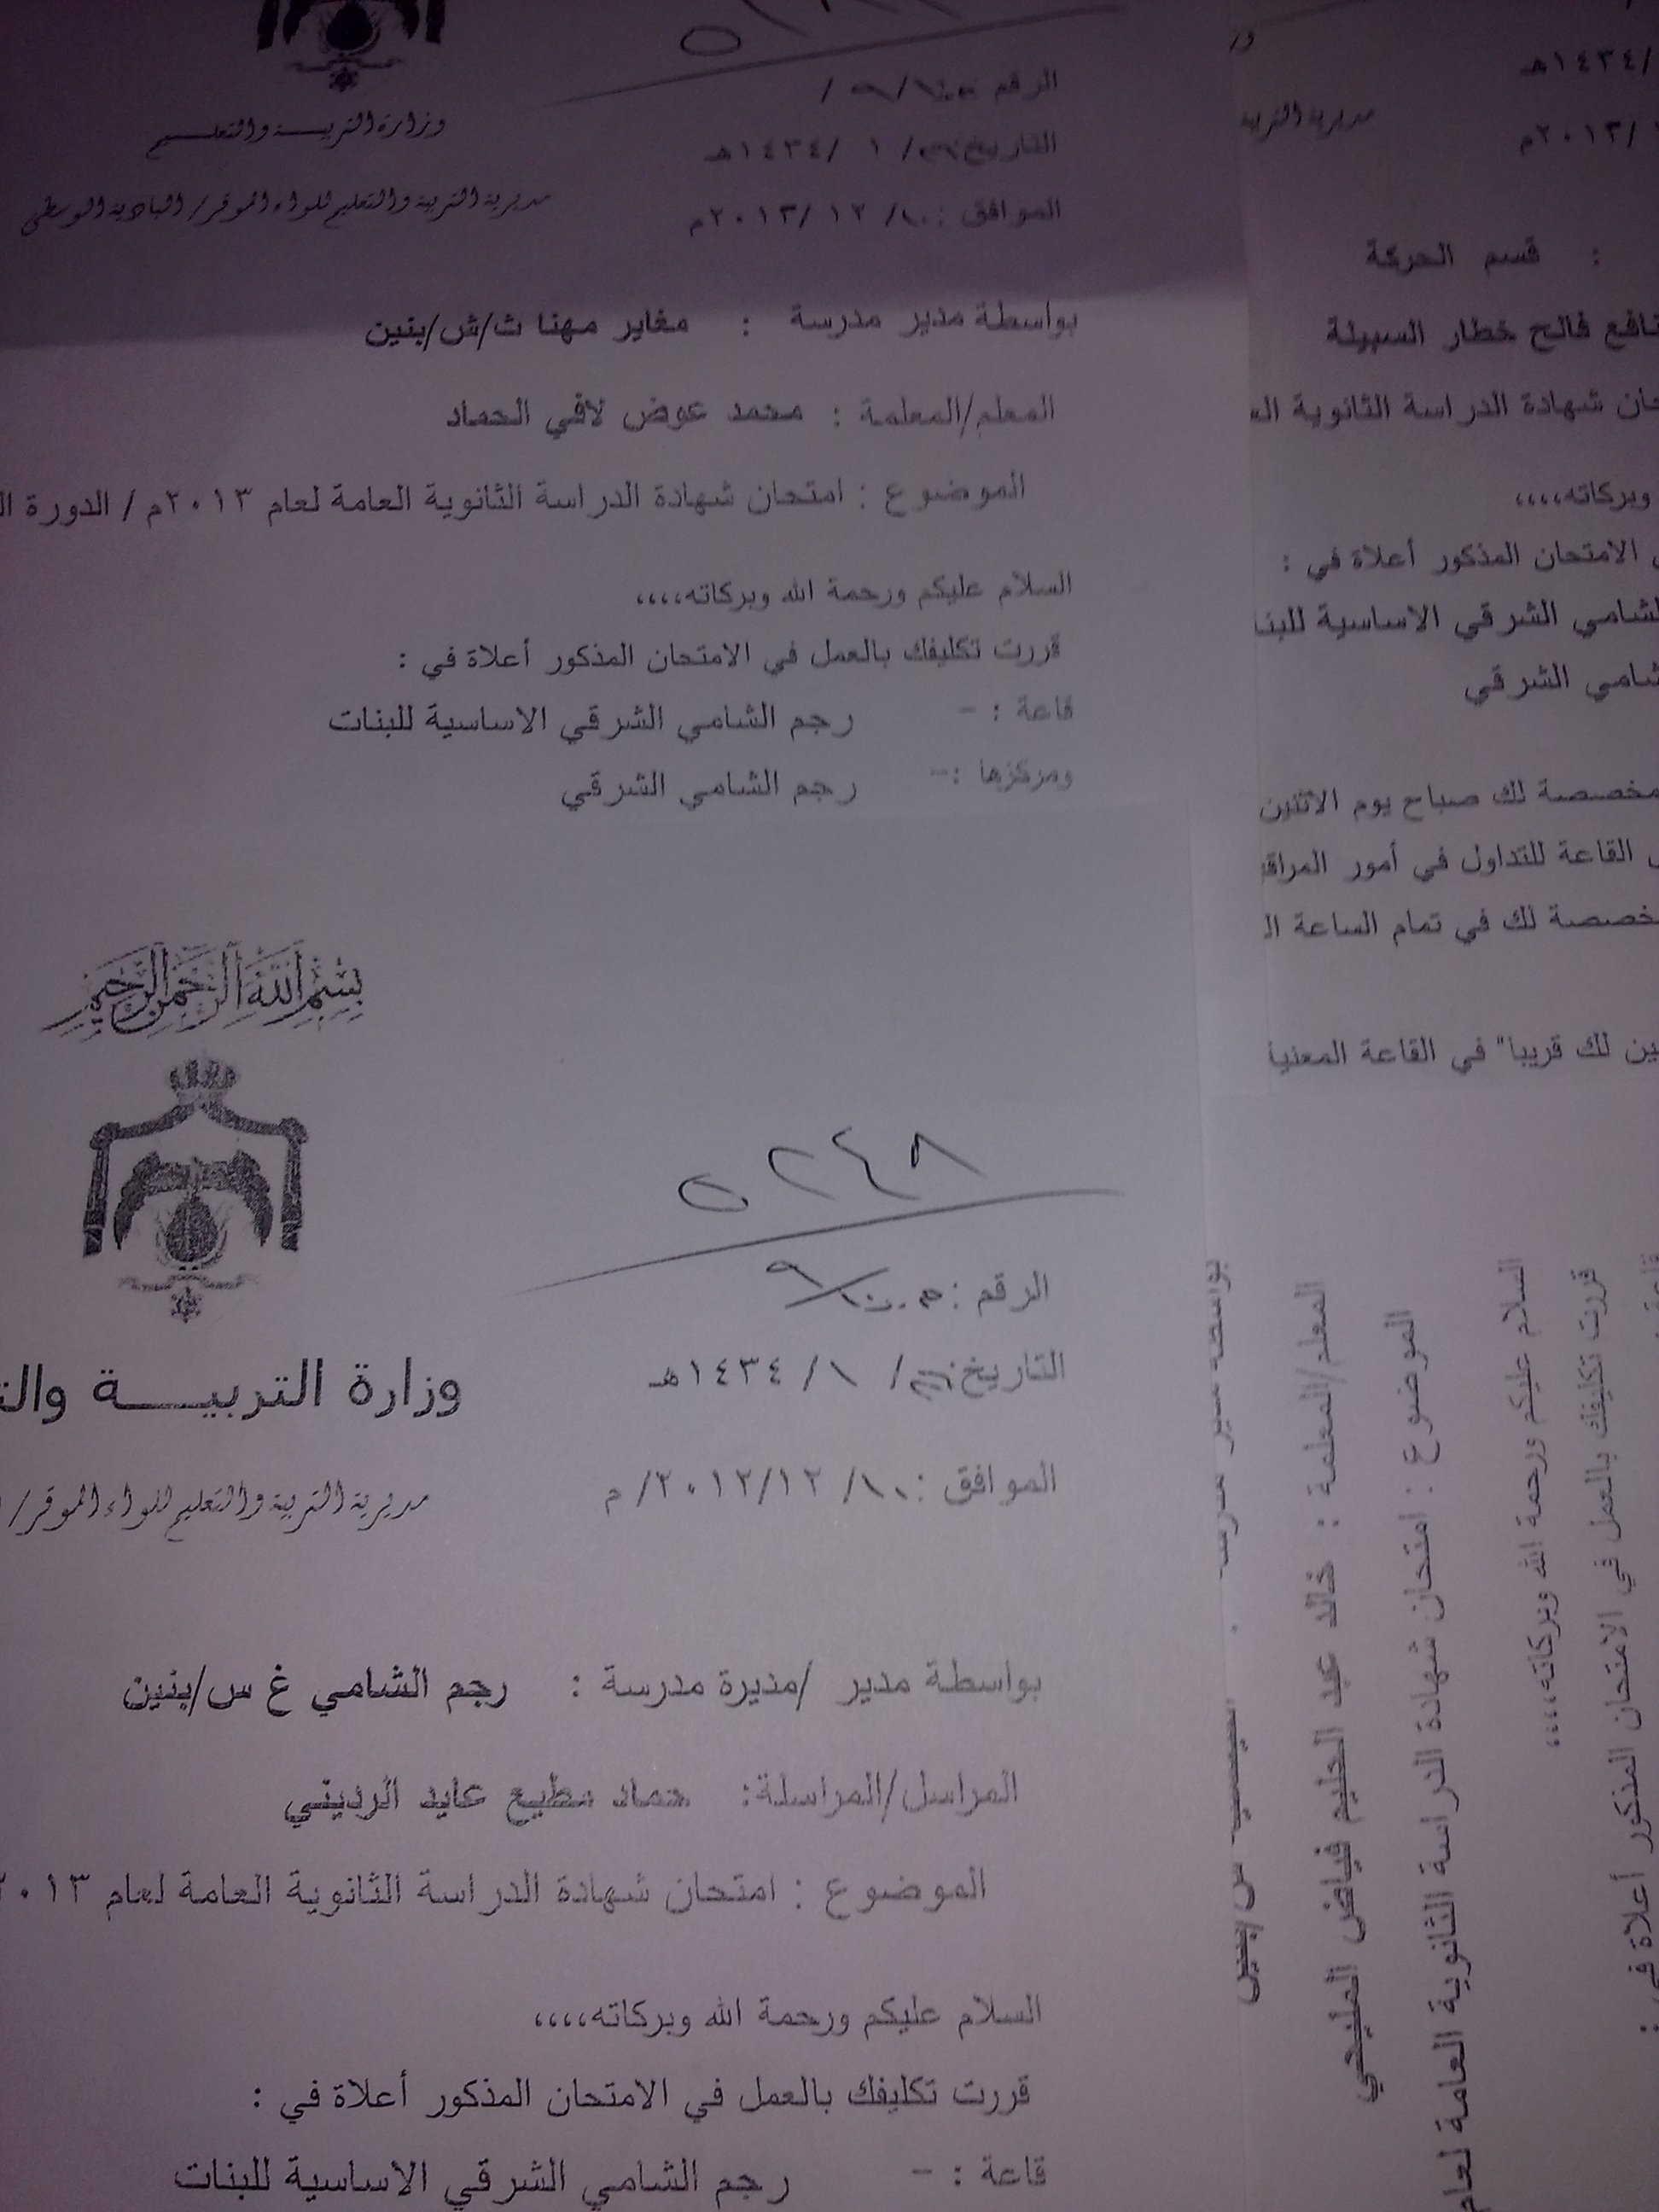 وزارة التربيـــة والتعلـــيم
مديرية التربية والتعليم للواء الموقر/ البادية الوسطى
الرقم
التاريخ: / ١ /١٤٣٤هـ
الموافق :١٠/ ١٢ /٢٠١٣م
بواسطة مدير مدرسة : مغاير مهنا ث/ش/بنين
المعلم/المعلمة : محمد عوض لافي الحماد
الموضوع : امتحان شهادة الدراسة الثانوية العامة لعام ٢٠١٣م / الدورة
السلام عليكم ورحمة الله وبركاته،،،،
قررت تكليفك بالعمل في الامتحان المذكور أعلاة في :
قاعة : - رجم الشامي الشرقي الاساسية للبنات
ومركزها :- رجم الشامي الشرقي
بسم الله الرحمن الرحيم
٥٢٤٨
الرقم :م.ت/١٠/٩
التاريخ: / ١/ ١٤٣٤هـ
الموافق :١٠/ ١٢/ ٢٠١٢/ م
وزارة التربيـــة
مديرية التربية والتعليم للواء الموقر/
بواسطة مدير /مديرة مدرسة : رجم الشامي غ س/بنين
المراسل/المراسلة: حماد مطيع عايد الرديني
الموضوع : امتحان شهادة الدراسة الثانوية العامة لعام ٢٠١٣
السلام عليكم ورحمة الله وبركاته،،،،
قررت تكليفك بالعمل في الامتحان المذكور أعلاة في :
قاعة : - رجم الشامي الشرقي الاساسية للبنات
/١٤٣٤هـ
/٢٠١٢م
مديرية التربية
: قسم الحركة
نافع فالح خطار السبيلة
شهادة الدراسة الثانوية
وبركاته،،،،
الامتحان المذكور أعلاة في :
الشامي الشرقي الاساسية
الشرقي
مخصصة لك صباح يوم الاثنين
القاعة للتداول في أمور
لك في تمام الساعة
لك قريبا" في القاعة
بواسطة مدير مدرسة
س/بنين
المعلم/المعلمة : خالد عبد الحليم فياض المليحي
الموضوع : امتحان شهادة الدراسة الثانوية العامة لعام
السلام عليكم ورحمة الله وبركاته،،،،
قررت تكليفك بالعمل في الامتحان المذكور أعلاة في :